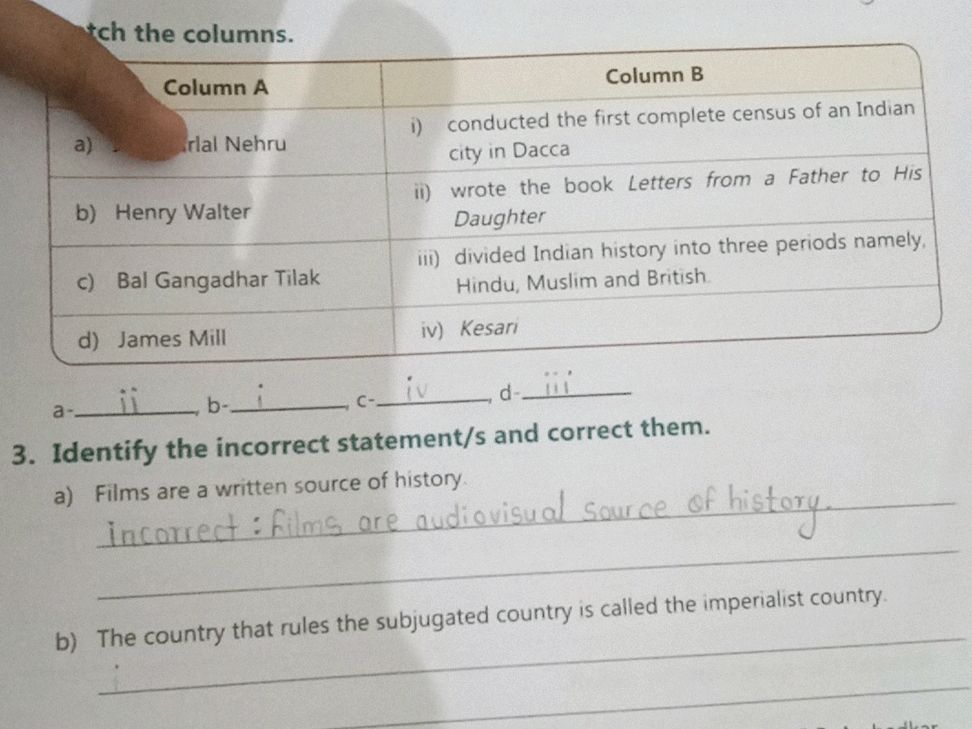 tch the columns.
Column A
Column B
a) rlal Nehru
i) conducted the first complete census of an Indian
city in Dacca
b) Henry Walter
ii) wrote the book Letters from a Father to His
Daughter
c) Bal Gangadhar Tilak
iii) divided Indian history into three periods namely,
Hindu, Muslim and British.
d) James Mill
iv) Kesari
a- ii , b- i , c- iv , d- iii
3. Identify the incorrect statement/s and correct them.
a) Films are a written source of history.
incorrect : films are audiovisual source of history.
b) The country that rules the subjugated country is called the imperialist country.
i